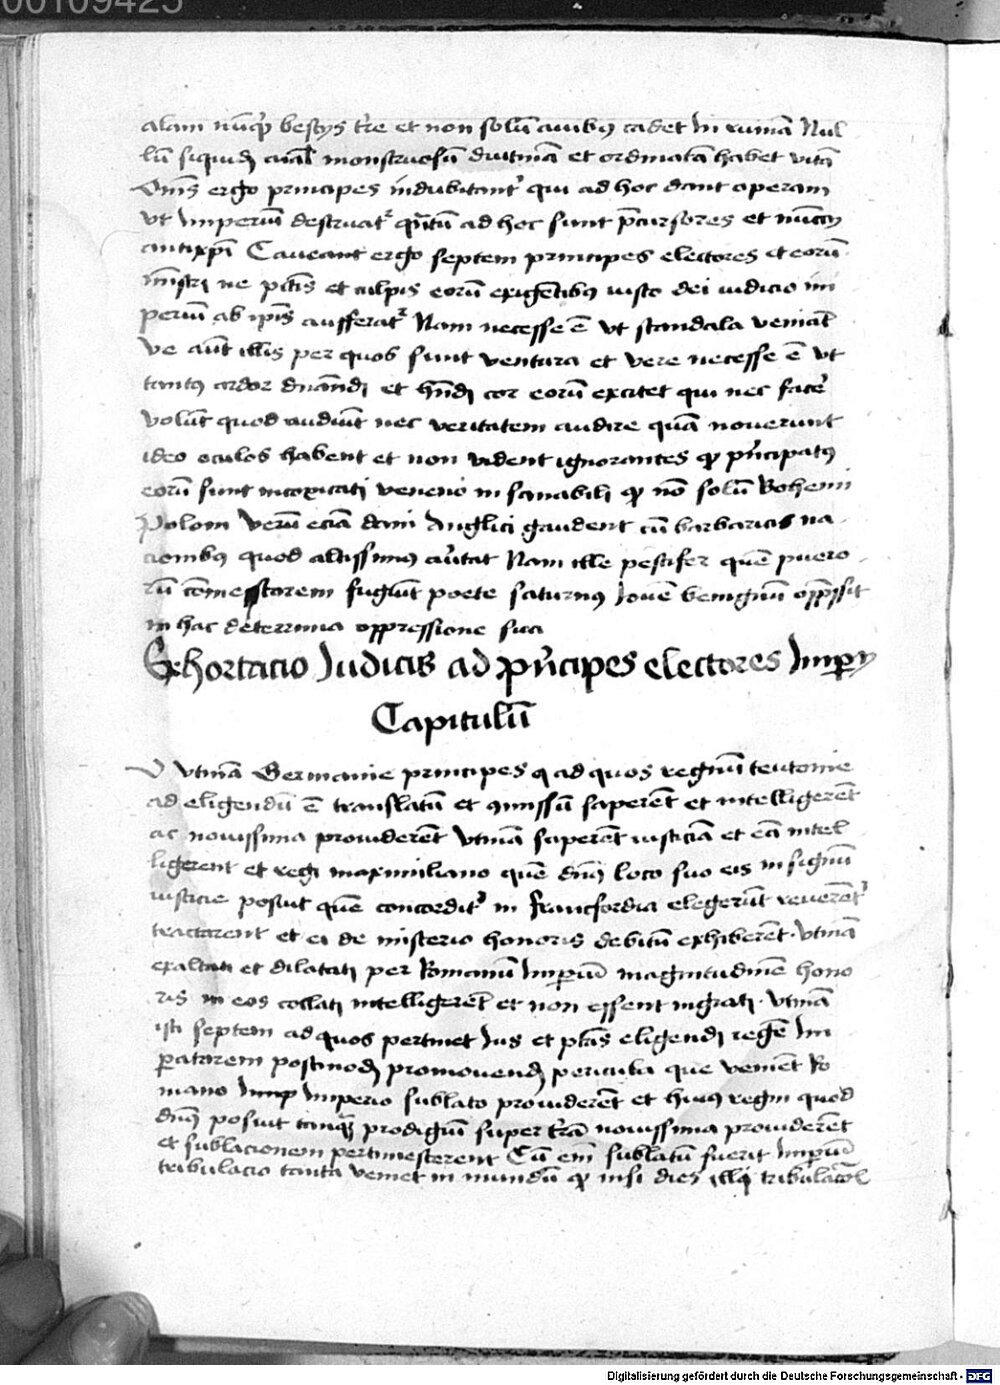 00109425
alam nūq̄ȝ bestijs t're et non solū auibȝ cadet In ruinā Nul
lū siquidē aīal monstruosū diutinā et ordinatā habet vitā
Om̄s ergo principes indubitant' qui ad hoc dant operam
vt Imperiū destruat' qn̄tū ad hoc sunt p̄cursores et nūccij
antixp̄i Caueant ergo septem principes electores et eorū
mīstri ne pc̄tis et culpis eorū exigētibȝ iusto dei iudicio im
periū ab ip̄is aufferat' Nam necesse ē vt scandala veniāt
ve aūt illis per quos sunt ventura et vere necesse ē vt
tantȝ ardor dn̄andi et hn̄di cor eorū excitet qui nec face'
volūt quod audiūt nec veritatem audire quā nouerunt
ideo oculos habent et non vident ignorantes qȝ pn̄cipatȝ
eorū sunt intoxicati veneno in sanabili qȝ nō solū Bohemi
Poloni Verū eciā dani Anglici gaudent cū barbaricis na
cionibȝ quod altissimȝ au'tat Nam ille pestifer quē puero
rū cōmestorem fugiūt poete saturnȝ Iouē benignū opp̄ssit
in hac deterrima oppressione sua
Exhortacio Iudicis ad pn̄cipes electores Imperij
Capitulū
O vtinā Germanie principes q ad quos regnū teutonie
ad eligendū ē translatū et 9missū saperēt et intelligerēt
ac nouissima prouiderēt Vtinā saperēt iusticiā et eā intel
ligerent et regi maximiliano quē dn̄s loco suo eis in signū
iusticie posuit quē concordit' in Francfordia elegerūt reuerēt'
tractarent et ei de misterio honoris debitū exhiberēt. Vtinā
exaltati et dilatati per Romanū Imperiū magnitudinē hono
ris in eos collati intelligerēt et non essent ingrati. Vtinā
isti septem ad quos pertinet Ius et ptās eligendi regē Im
peratorem postmodū promouendū pericula que veniēt Ro
mano Imp Imperio sublato prouiderēt et huiȝ regni quod
dn̄s posuit tanq̄ȝ prodigiū super t'rā nouissima prouiderēt
et sublacionem pertimescerent Cū em̄ sublatū fuerit Imperiū
tribulacio tanta veniet in mundū qȝ nisi dies illi tribulacōī
Digitalisierung gefördert durch die Deutsche Forschungsgemeinschaft - DFG